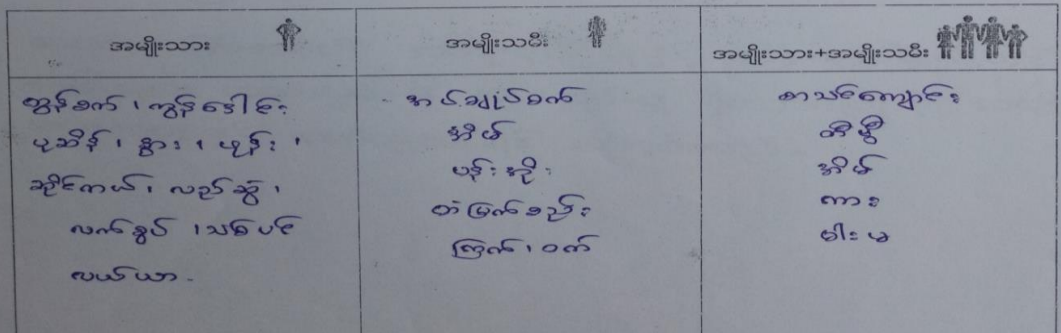 အမျိုးသား
အမျိုးသမီး
အမျိုးသား+အမျိုးသမီး
ထွန်စက်၊ ကျွန်းခေါင်း
ပုဆိန်၊ နွား၊ ဖုန်း၊
ဆိုင်ကယ်၊ လည်ဆွဲ၊
လက်စွပ်၊ သစ်ပင်
လယ်ယာ-
အပ်ချုပ်စက်
အိမ်
ပန်းအိုး
တံမြက်စည်း
ကြက်၊ ဝက်
စာသင်ကျောင်း
တီဗွီ
အိမ်
ကား
ဓါးမ